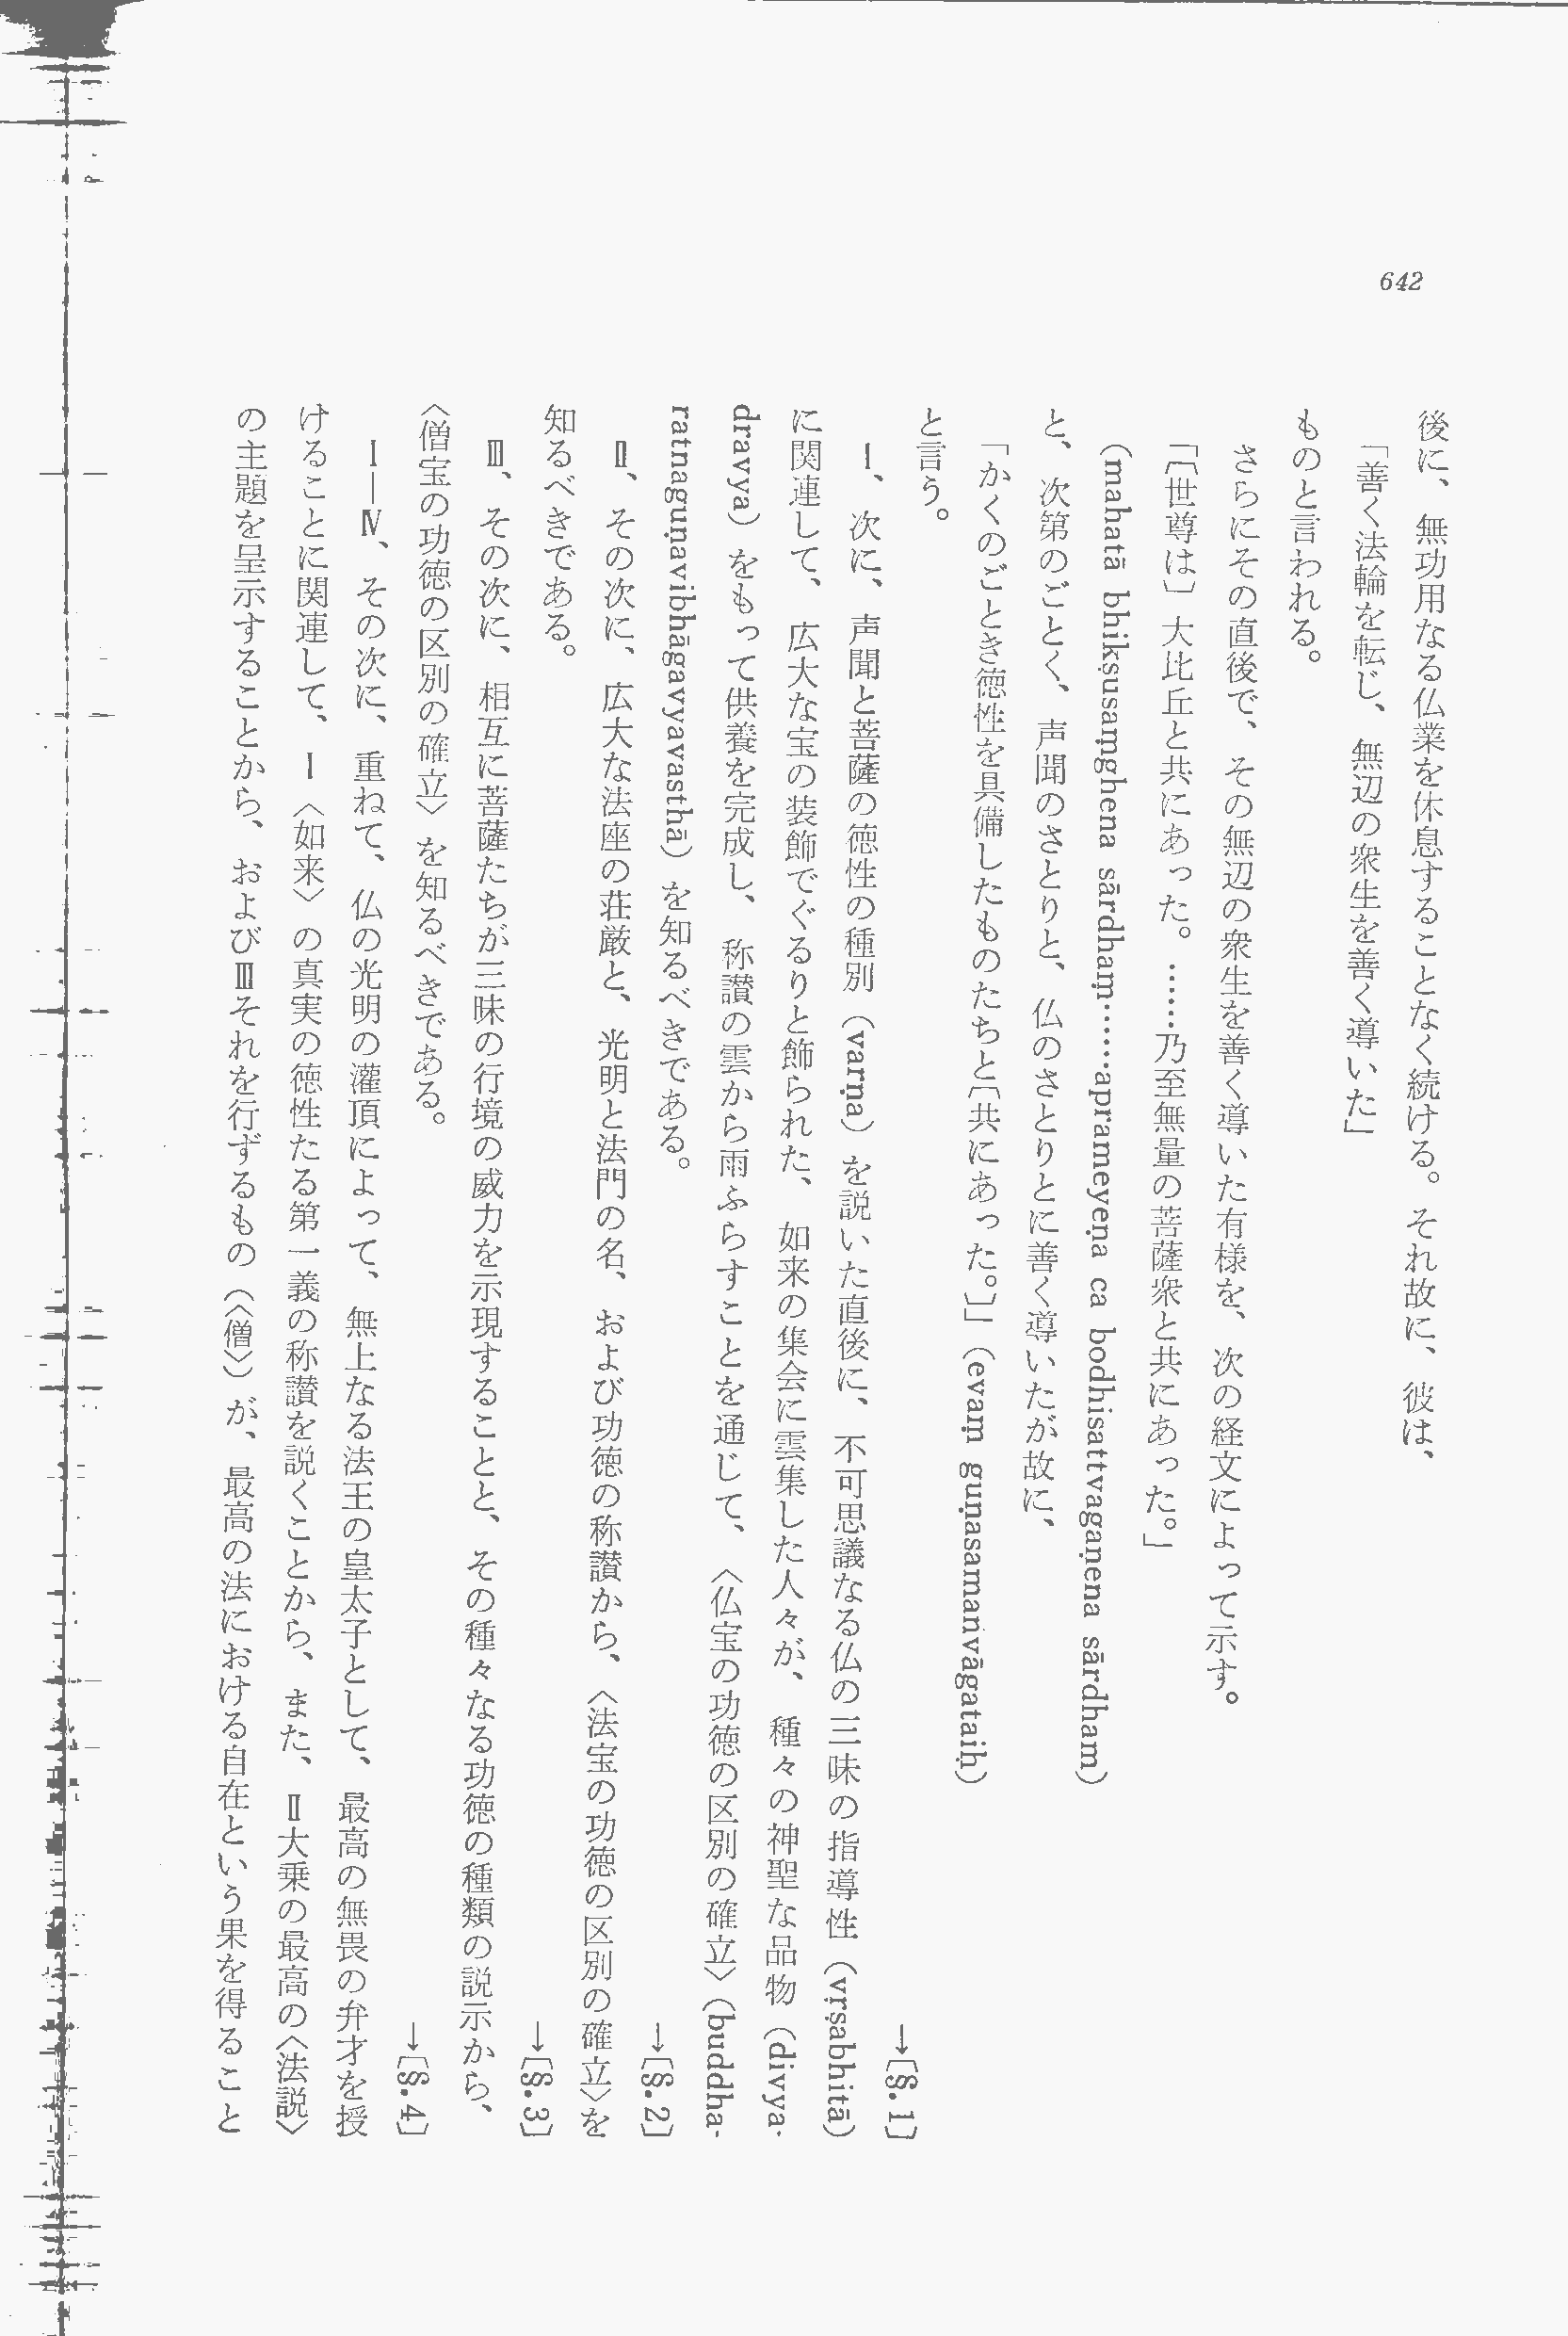 642
後に、無功用なる仏業を休息することなく続ける。それ故に、彼は、
「善く法輪を転じ、無辺の衆生を善く導いた」
ものと言われる。
さらにその直後で、その無辺の衆生を善く導いた有様を、次の経文によって示す。
「〔世尊は〕大比丘と共にあった。……乃至無量の菩薩衆と共にあった。」
(mahatā bhikṣusaṃghena sārdhaṃ……aprameyeṇa ca bodhisattvagaṇena sārdham)
と、次第のごとく、声聞のさとりと、仏のさとりとに善く導いたが故に、
「かくのごとき徳性を具備したものたちと〔共にあった。〕」(evaṃ guṇasamanvāgataiḥ)
と言う。
→〔§.1〕
Ⅰ、次に、声聞と菩薩の徳性の種別(varṇa)を説いた直後に、不可思議なる仏の三昧の指導性(vṛṣabhitā)
に関連して、広大な宝の装飾でぐるりと飾られた、如来の集会に雲集した人々が、種々の神聖な品物(divya-
dravya)をもって供養を完成し、称讃の雲から雨ふらすことを通じて、〈仏宝の功徳の区別の確立〉(buddha-
ratnaguṇavibhāgavyavasthā)を知るべきである。
→〔§.2〕
Ⅱ、その次に、広大な法座の荘厳と、光明と法門の名、および功徳の称讃から、〈法宝の功徳の区別の確立〉を
知るべきである。
→〔§.3〕
Ⅲ、その次に、相互に菩薩たちが三昧の行境の威力を示現することと、その種々なる功徳の種類の説示から、
〈僧宝の功徳の区別の確立〉を知るべきである。
→〔§.4〕
Ⅰ—Ⅳ、その次に、重ねて、仏の光明の灌頂によって、無上なる法王の皇太子として、最高の無畏の弁才を授
けることに関連して、Ⅰ〈如来〉の真実の徳性たる第一義の称讃を説くことから、また、Ⅱ大乗の最高の〈法説〉
の主題を呈示することから、およびⅢそれを行ずるもの(〈僧〉)が、最高の法における自在という果を得ること